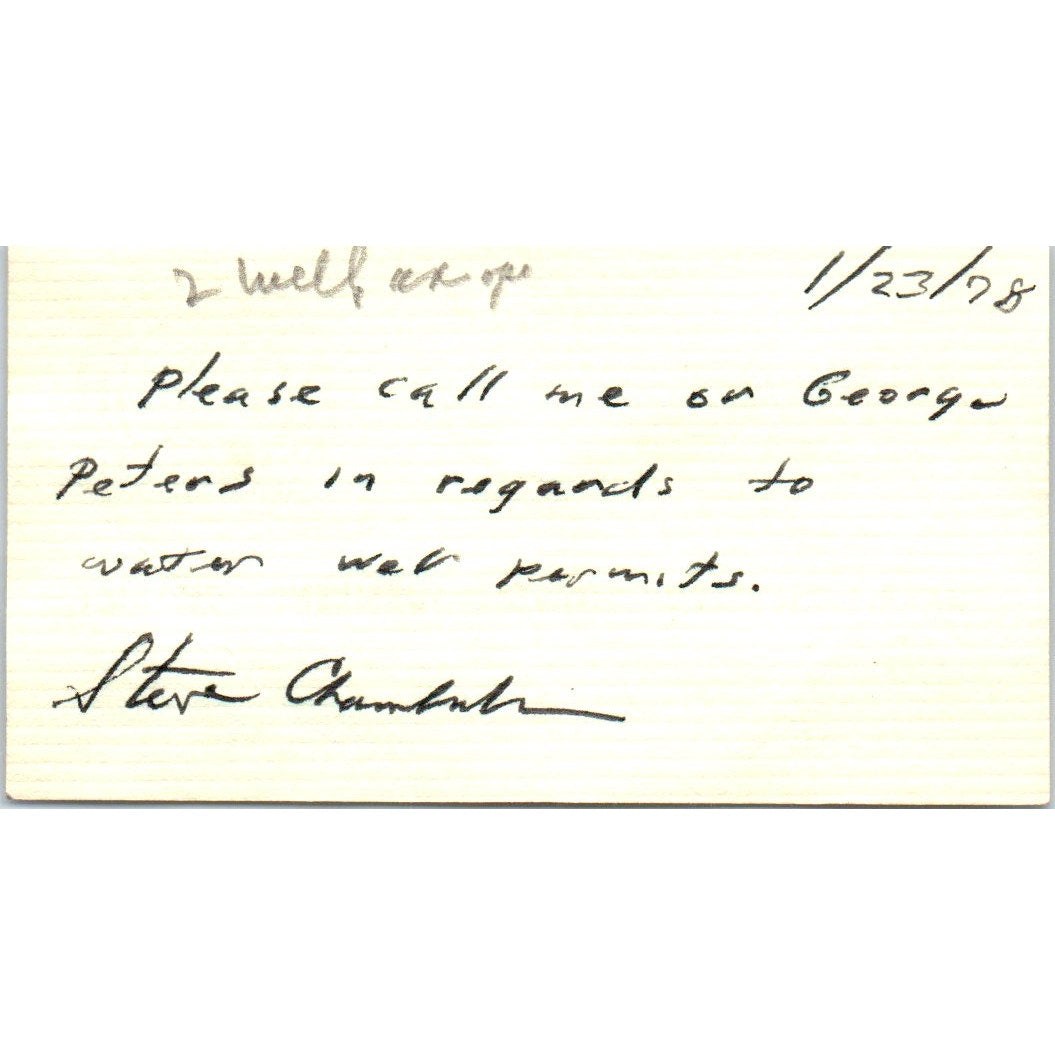 2 wells
1/23/78
Please call me or George
Peters in regards to
water well permits.
Steve